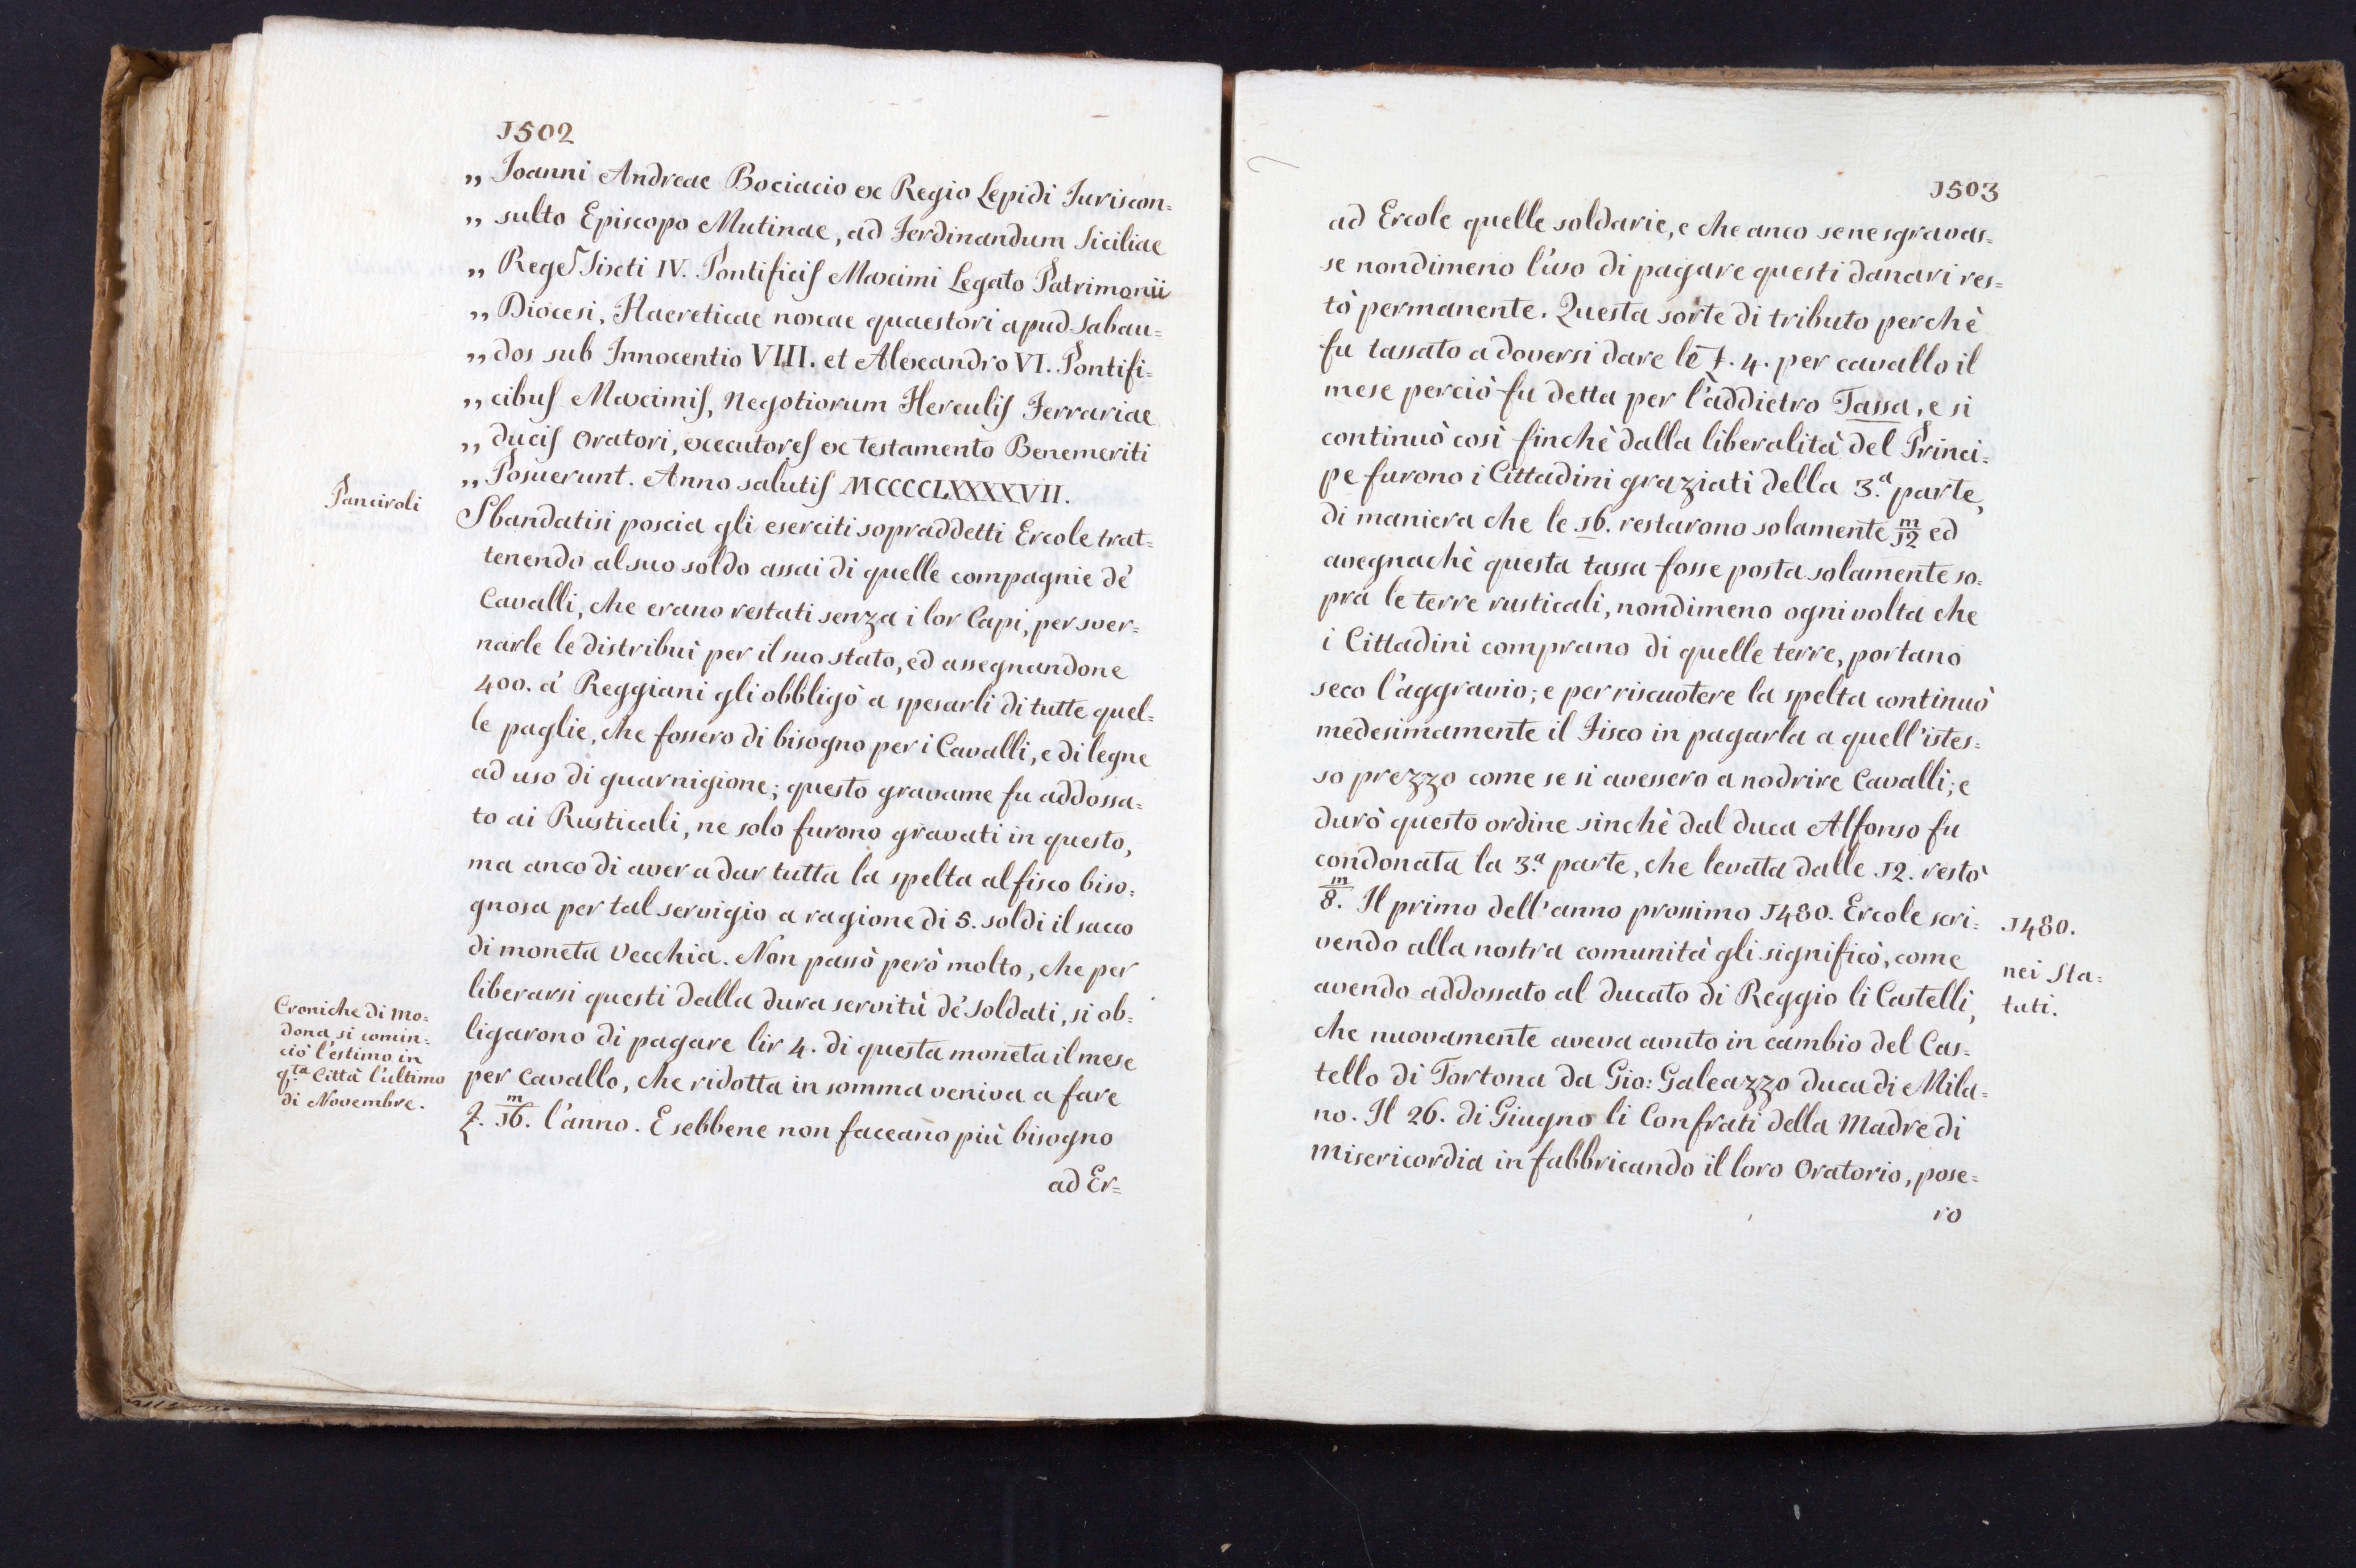 1502
„ Joanni Andreae Bociacio ex Regio Lepidi Juriscon=
„ sulto Episcopo Mutinae, ad Ferdinandum Siciliae
„ Rege Sixti IV. Pontificis Maximi Legato Patrimonii
„ Diocesi, Haereticae noxae quaestori apud Sabau=
„ dos sub Innocentio VIII. et Alexandro VI. Pontifi=
„ cibus Maximis, Negotiorum Herculis Ferrariae
„ Ducis Oratori, executores ex testamento Benemeriti
„ Posuerunt. Anno salutis MCCCCLXXXXVII.
Panciroli
Sbandatisi poscia gli eserciti sopraddetti Ercole trat=
tenendo al suo soldo assai di quelle compagnie de'
Cavalli, che erano restati senza i lor Capi, per sver=
narle le distribuì per il suo stato, ed assegnandone
400. a' Reggiani gli obbligò a spesarli di tutte quel=
le paglie, che fossero di bisogno per i Cavalli, e di legne
ad uso di guarnigione; questo gravame fu addossa=
to ai Rusticali, ne solo furono gravati in questo,
ma anco di aver a dar tutta la spelta al fisco biso=
gnosa per tal servigio a ragione di 5. soldi il sacco
di moneta vecchia. Non passò però molto, che per
liberarsi questi dalla dura servitù de' soldati, si ob=
ligarono di pagare lir 4. di questa moneta il mese
per Cavallo, che ridotta in somma veniva a fare
m/16. l'anno. E sebbene non faceano più bisogno
ad Er=
Croniche di Mo=
dona si comin=
ciò l'estimo in
q.ta Città l'ultimo
di Novembre.
1503
ad Ercole quelle soldarie, e che anco se ne sgravas=
se nondimeno l'uso di pagare questi danari res=
tò permanente. Questa sorte di tributo perchè
fu tassato a doversi dare le 4. per cavallo il
mese perciò fu detta per l'addietro Tassa, e si
continuò così finchè dalla liberalità del Princi=
pe furono i Cittadini graziati della 3.a parte,
di maniera che le 16. restarono solamente m/12 ed
avegnachè questa tassa fosse posta solamente so=
pra le terre rusticali, nondimeno ogni volta che
i Cittadini comprano di quelle terre, portano
seco l'aggravio; e per riscuotere la spelta continuò
medesimamente il Fisco in pagarla a quell'istes=
so prezzo come se si avessero a nodrire Cavalli; e
durò questo ordine sinchè dal duca Alfonso fu
condonata la 3.a parte, che levata dalle 12. restò
m/8. Il primo dell'anno prossimo 1480. Ercole scri=
vendo alla nostra comunità gli significò, come
avendo addossato al ducato di Reggio li Castelli,
che nuovamente aveva avuto in cambio del Cas=
tello di Tortona da Gio: Galeazzo duca di Mila=
no. Il 26. di Giugno li Confrati della Madre di
Misericordia in fabbricando il loro Oratorio, pose=
ro
1480.
nei Sta=
tuti.